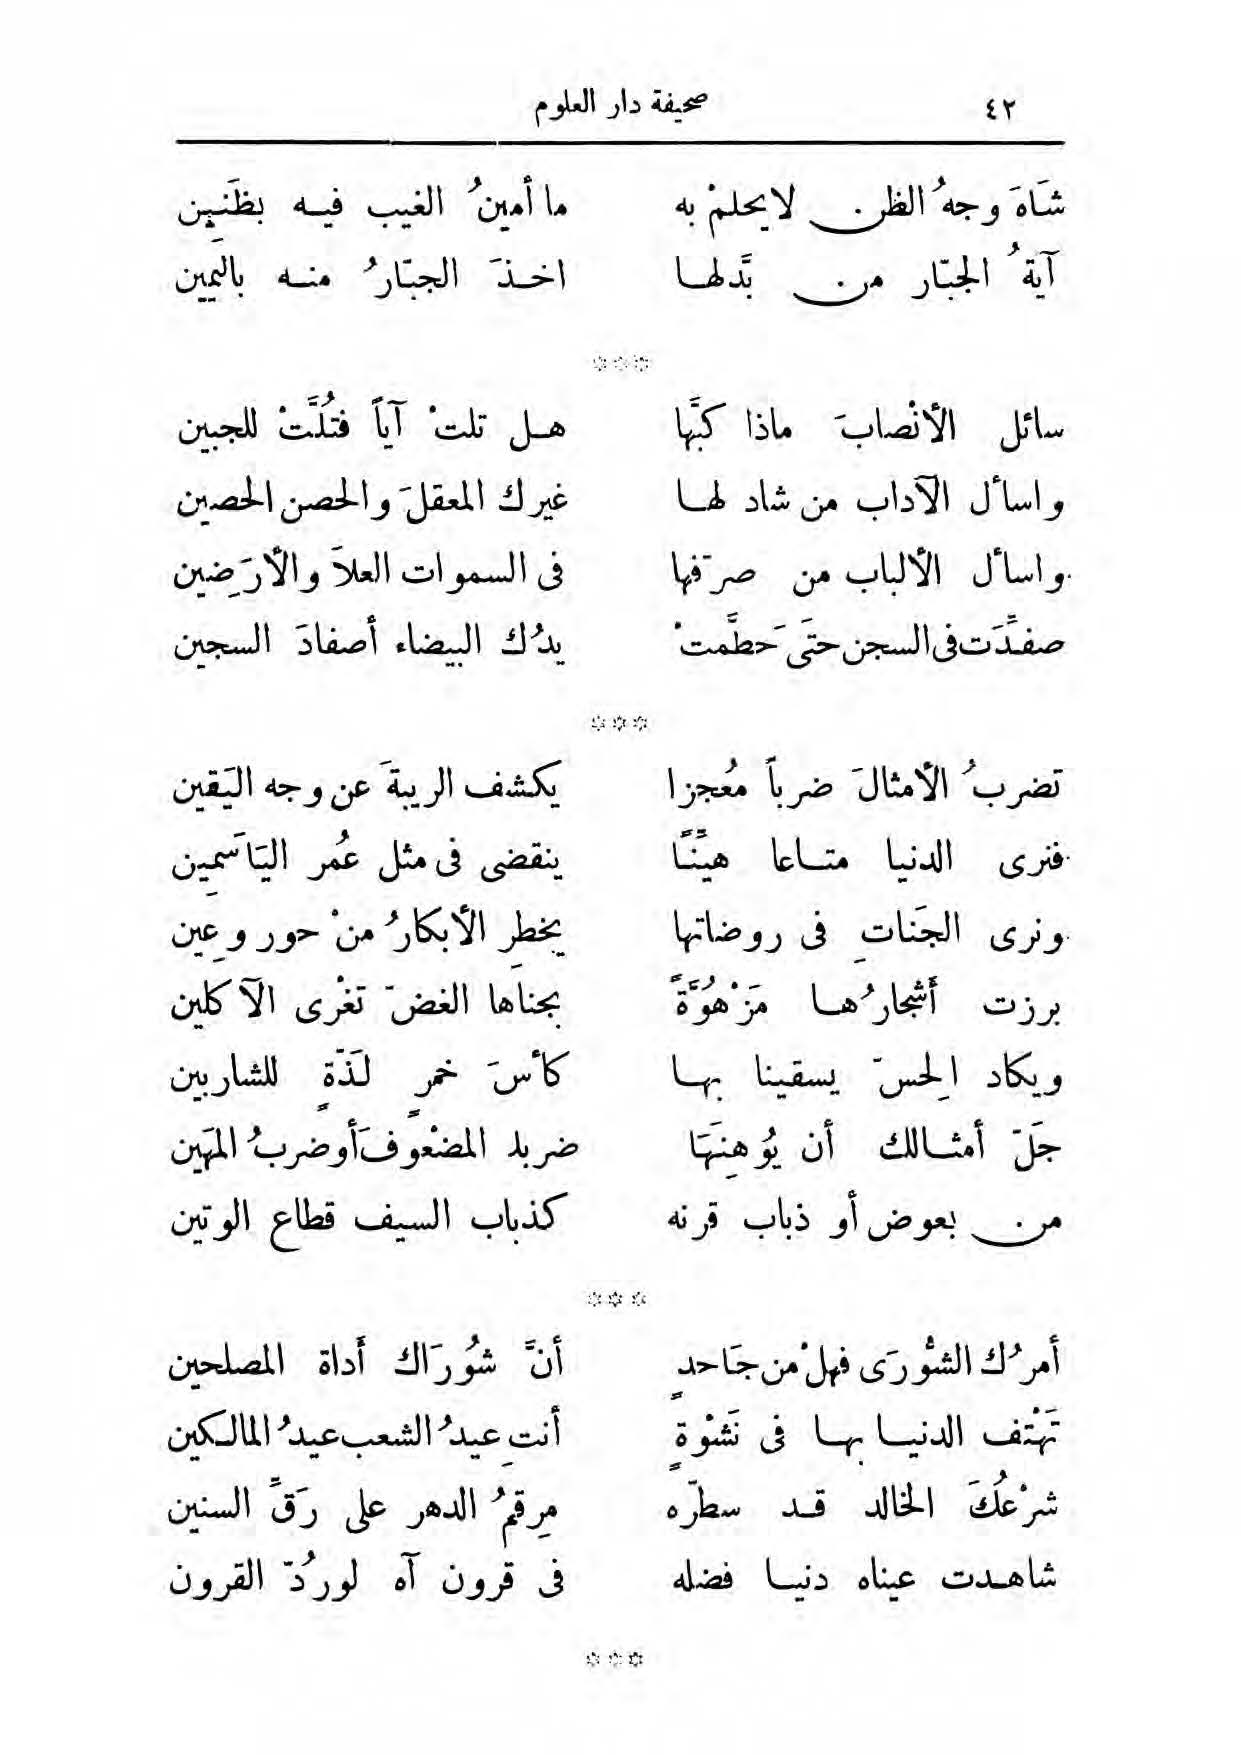 ٤٢ صحيفة دار العلوم
شَاهَ وجهُ الظن لا يحلمْ به ما أمينُ الغيب فيه بظَنين
آيةُ الجبّار من بدَّلها اخذَ الجبّارُ منه باليَمين
***
سائل الأنْصابَ ماذا كبَّها هل تلتْ آياً فتُلَّتْ للجبين
واسأل الآداب من شاد لها غيرك المعقلَ والحصن الحصين
واسأل الألباب من صرّفها فى السموات العلاَ والأرَضِين
صفِّدَت فى السجن حتَى حَطَّمتْ يدُك البيضاء أصفادَ السجين
***
تضربُ الأمثالَ ضرباً مُعجزا يكشف الريبةَ عن وجه اليَقين
فنرى الدنيا متاعا هيِّنًا ينقضى فى مثل عُمر اليَاسَمِين
ونرى الجَناتِ فى روضاتها يخطِر الأبكارُ منْ حور وعِين
برزت أشجارُها مَزْهُوَّةً بجناها الغضّ تغْرى الآكلين
ويكاد الِحسّ يسقينا بها كأسَ خمرٍ لَذّةٍ للشاربين
جَلّ أمثالك أن يُوهِنَهَا ضربك المضْعوفَ أو ضربُ المَهين
من بعوض أو ذباب قرنه كذباب السيف قطاع الوتين
***
أمرُك الشُّورَى فهلْ من جَاحدٍ أنَّ شُورَاك أَداة المصلحين
تَهْتف الدنيا بها فى نَشْوةٍ أنتِ عيدُ الشعب عيدُ المالكين
شرْعُكَ الخالد قد سطّره مِرقمُ الدهر على رَقِّ السنين
شاهدت عيناه دنيا فضله فى قرون آه لو رُدّ القرون
***